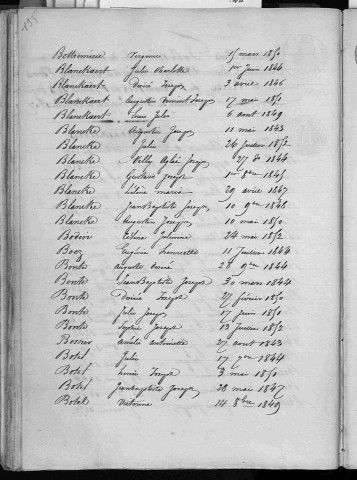 135
Bettremieux Virginie 15 mars 1850
Blanckaert Julie Charlotte 1er Juin 1844
Blanckaert Désiré Joseph 3 avril 1846
Blanckaert Augustin Vincent Joseph 17 mai 1850
Blanckaert Louis Jules 6 août 1849
Blancke Augustin Joseph 11 mai 1843
Blancke Julie 26 Juillet 1852
Blancke Nelly Aglaé Joseph 27 do 1844
Blancke Gustave Joseph 1er 8bre 1845
Blancke Hélène Marie 29 avril 1847
Blancke Jean Baptiste Joseph 10 9bre 1848
Blancke Augustin Joseph 10 mai 1850
Bodin Céline Julienne 24 mai 1852
Boez Eugénie Henriette 11 Juillet 1844
Bonte Auguste Désiré 28 9bre 1844
Bonte Jean Baptiste Joseph 30 mars 1844
Bonte Désiré Joseph 27 février 1850
Bonte Julie Joseph 17 Juin 1850
Bonte Sophie Joseph 13 Juillet 1852
Bossus Amélie Antoinette 27 août 1843
Botel Julie 17 7bre 1844
Botel Louis Joseph 3 mai 1850
Botel Jean baptiste Joseph 28 mai 1847
Botel Victorine 14 8bre 1849